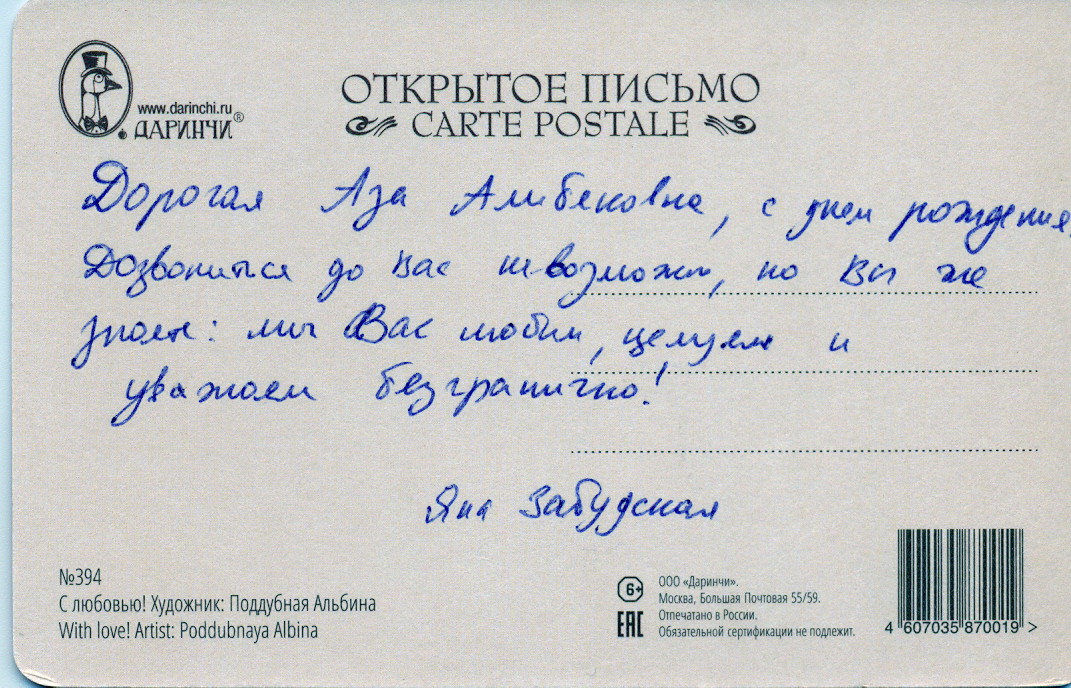 www.darinchi.ru
ДАРИНЧИ®
ОТКРЫТОЕ ПИСЬМО
CARTE POSTALE
Дорогая Аза Алибековна, с днем рождения.
Дозвониться до Вас невозможно, но Вы же
знаете: мы Вас любим, целуем и
уважаем безгранично!
Яна Забудская
№394
С любовью! Художник: Поддубная Альбина
With love! Artist: Poddubnaya Albina
6+
EAC
ООО «Даринчи».
Москва, Большая Почтовая 55/59.
Отпечатано в России.
Обязательной сертификации не подлежит.
4 607035 870019 >